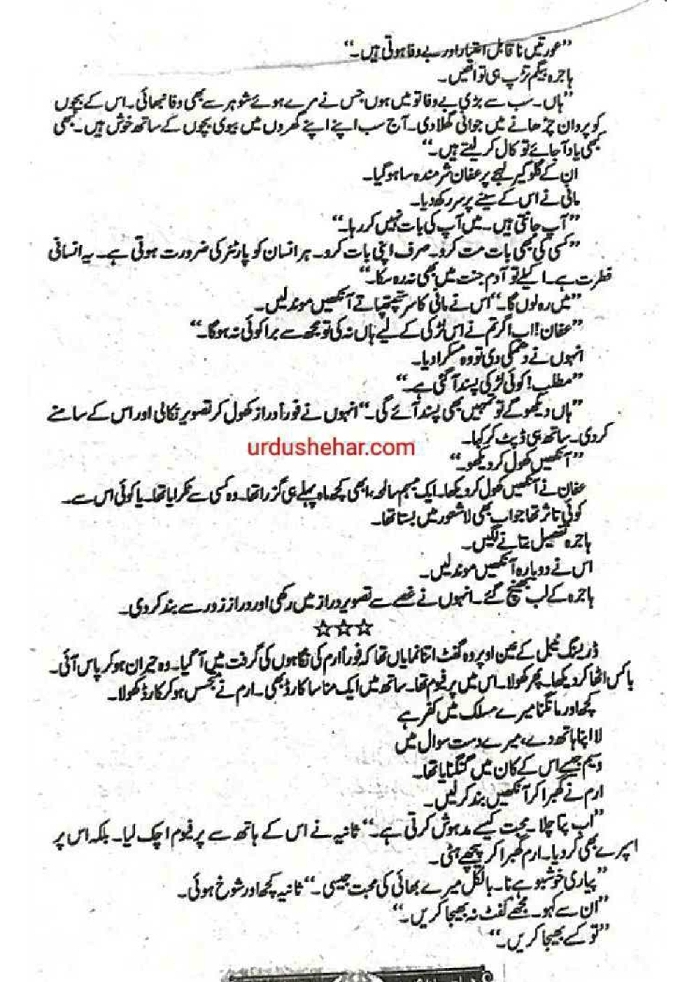 ”عورتیں ناقابل اعتبار اور بے وفا ہوتی ہیں۔“
ہاجرہ بیگم تڑپ ہی تو اٹھیں۔
”ہاں۔ سب سے بڑی بے وفا تو میں ہوں جس نے مرے ہوئے شوہر سے بھی وفا نبھائی۔ اس کے بچوں
کو پروان چڑھانے میں جوانی گھلا دی۔ آج سب اپنے اپنے گھروں میں بیوی بچوں کے ساتھ خوش ہیں۔ کبھی
کبھی یاد آ جائے تو کال کر لیتے ہیں۔“
ان کے گلوگیر لہجے پر عفان شرمندہ سا ہو گیا۔
مانی نے اس کے سینے پر سر رکھ دیا۔
”آپ جانتی ہیں۔ میں آپ کی بات نہیں کر رہا۔“
”کسی کی بھی بات مت کرو۔ صرف اپنی بات کرو۔ ہر انسان کو پارٹنر کی ضرورت ہوتی ہے۔ یہ انسانی
فطرت ہے۔ اکیلے تو آدم جنت میں بھی نہ رہ سکا۔“
”میں رہ لوں گا۔“ اس نے مانی کا سر تھپتھپاتے آنکھیں موند لیں۔
”عفان! اب اگر تم نے اس لڑکی کے لیے ہاں نہ کی تو مجھ سے برا کوئی نہ ہوگا۔“
انہوں نے دھمکی دی تو وہ مسکرا دیا۔
”مطلب! کوئی لڑکی پسند آ گئی ہے۔“
”ہاں دیکھو گے تو تمہیں بھی پسند آئے گی۔“ انہوں نے فوراً دراز کھول کر تصویر نکالی اور اس کے سامنے
کر دی۔ ساتھ ہی ڈپٹ کر کہا۔
urdushehar.com
”آنکھیں کھول کر دیکھو۔“
عفان نے آنکھیں کھول کر دیکھا۔ ایک مبہم سا لمحہ، ابھی کچھ ماہ پہلے ہی گزرا تھا۔ وہ کسی سے ٹکرایا تھا۔ یا کوئی اس سے۔
کوئی تاثر تھا جو اب بھی لاشعور میں بستا تھا۔
ہاجرہ تفصیل بتانے لگیں۔
اس نے دوبارہ آنکھیں موند لیں۔
ہاجرہ کے لب بھنچ گئے۔ انہوں نے غصے سے تصویر دراز میں رکھی اور دراز زور سے بند کر دی۔
☆☆☆
ڈریسنگ ٹیبل کے عین اوپر وہ گفٹ اتنا نمایاں تھا کہ فوراً ارم کی نگاہوں کی گرفت میں آ گیا۔ وہ حیران ہو کر پاس آئی۔
باکس اٹھا کر دیکھا۔ پھر کھولا۔ اس میں پرفیوم تھا۔ ساتھ میں ایک منا سا کارڈ بھی۔ ارم نے متجسس ہو کر کارڈ کھولا۔
کچھ اور مانگنا میرے مسلک میں کفر ہے
لا اپنا ہاتھ دے، میرے دست سوال میں
وسیم جیسے اس کے کان میں گنگنایا تھا۔
ارم نے گھبرا کر آنکھیں بند کر لیں۔
”اب پتا چلا۔ محبت کیسے مدہوش کرتی ہے۔“ ثانیہ نے اس کے ہاتھ سے پرفیوم اچک لیا۔ بلکہ اس پر
اسپرے بھی کر دیا۔ ارم گھبرا کر پیچھے ہٹی۔
”پیاری خوشبو ہے نا۔ بالکل میرے بھائی کی محبت جیسی۔“ ثانیہ کچھ اور شوخ ہوئی۔
”ان سے کہو۔ مجھے گفٹ نہ بھیجا کریں۔“
”تو کسے بھیجا کریں۔“